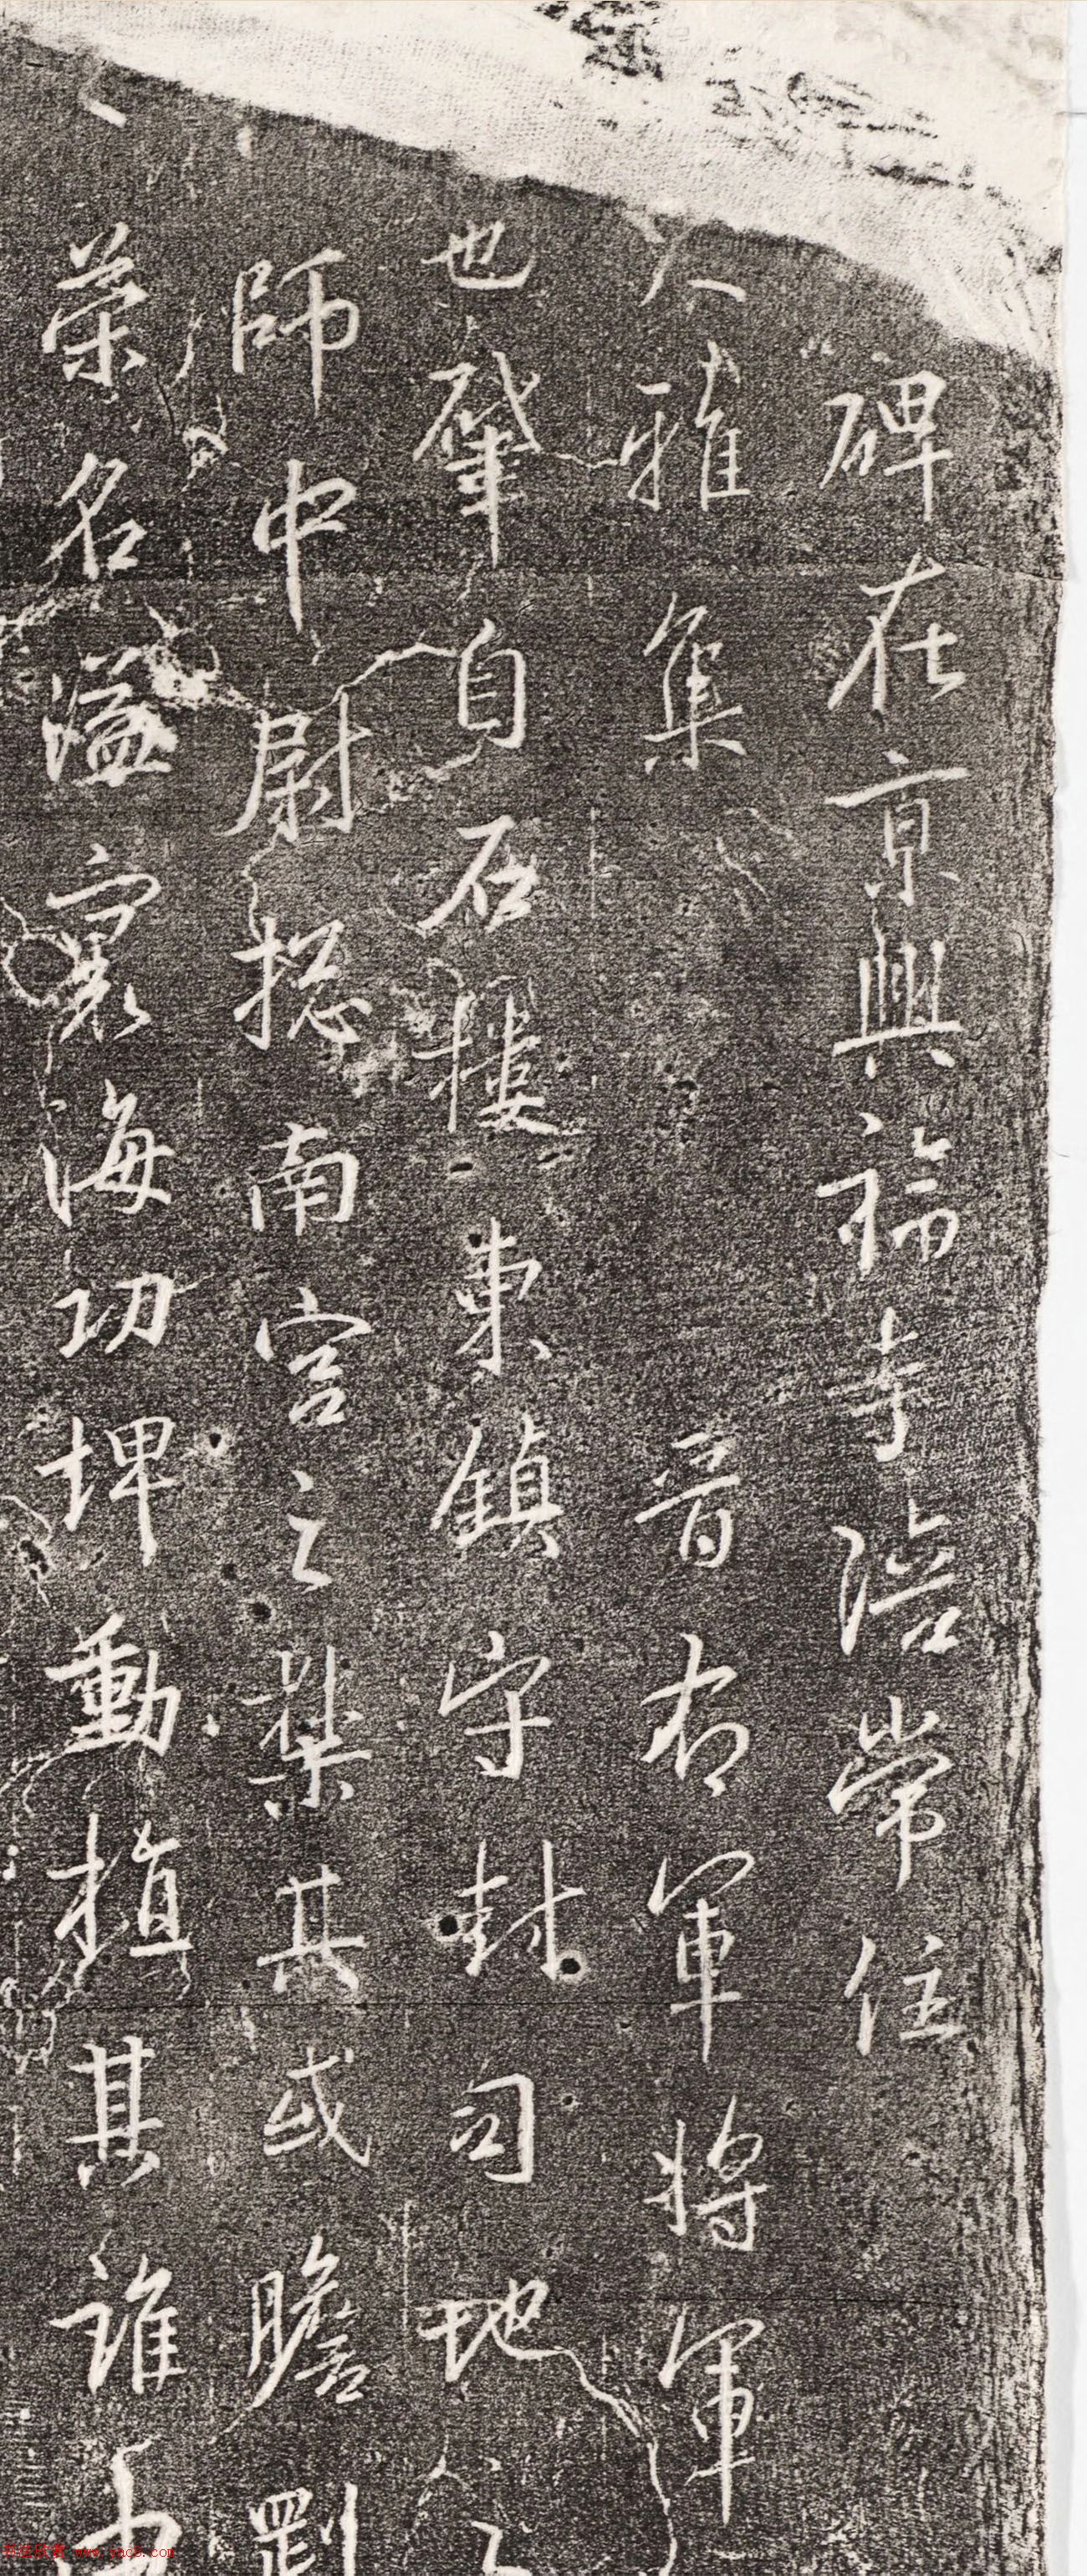 碑在京興福寺陪常住
大雅集晉右軍將軍
也肇自石樓東鎮守封司地
師中尉揔南宮之禁其或瞻劉
榮名溢寰海功埤動植其誰由
www.yac8.com